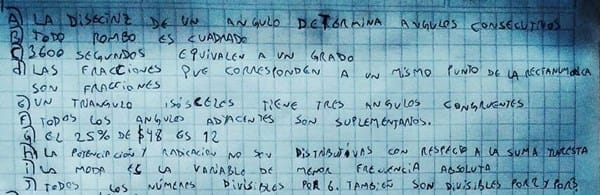 A) LA DISECINZ DE UN ANGULO DETERMINA ANGULOS CONSECUTIVOS
B) TODO ROMBO ES CUADRADO
C) 3600 SEGUNDOS EQUIVALEN A UN GRADO
d) LAS FRACCIONES QUE CORRESPONDEN A UN MISMO PUNTO DE LA RECTA
SON FRACCIONES
E) UN TRIANGULO ISÓSCELES TIENE TRES ANGULOS CONGRUENTES
F) TODOS LOS ANGULOS ADJACENTES SON SUPLEMENTARIOS.
G) EL 25% DE $48 ES 12
LA POTENCIACIÓN Y RADICACION NO SEN DISTRIBUTIVAS CON RESPECTO A LA SUMA Y RESTA
i) LA MODA ES LA VARIABLE DE MENOR FRECUENCIA ABSOLUTA
J) TODOS LOS NÚMEROS DIVISIBLES POR 6. TAMBIÉN SON DIVISIBLES POR 2 Y POR 3